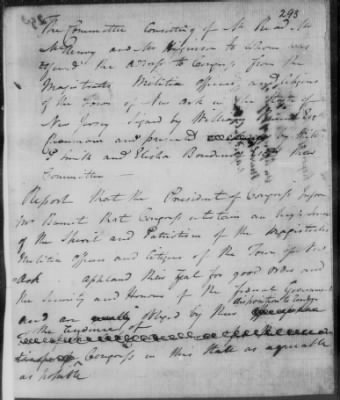 293
The Committee Consisting of Mr Read Mr
McHenry and Mr Higginson to whom was
referred the address to Congress from the
Magistrates Militia officers and Citizens
of the Town of New Ark in the State of
New Jersey signed by William Burnet Esqr
Chairman and presented by
Smith and Elisha Boudinot Esqrs their
Committee —
Report that the President of Congress inform
Mr Burnet that Congress entertain an high sense
of the Spirit and Patriotism of the Magistrates
Militia Officers and Citizens of the Town of New
Ark applaud their Zeal for good order and
the Security and Honour of the federal Government
and are obliged by their disposition to render
the residence of
Congress in this State as agreeable
as possible